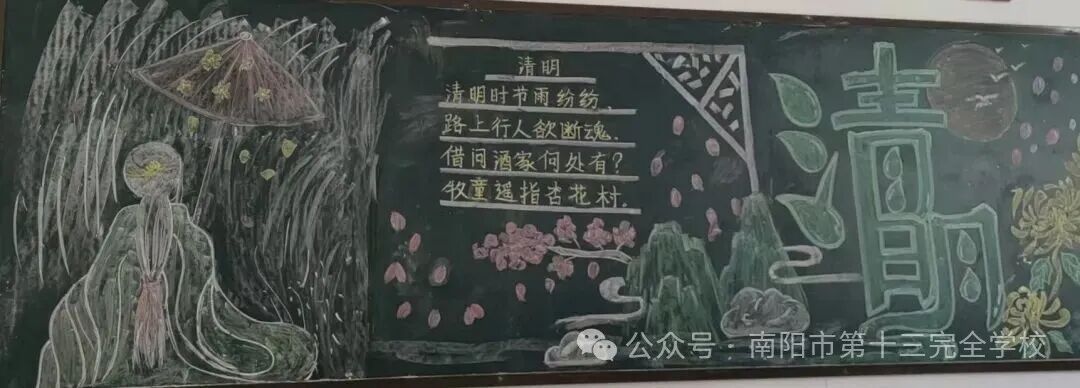 清明
清明时节雨纷纷、
路上行人欲断魂.
借问酒家何处有?
牧童遥指杏花村.
清明
公众号·南阳市第十三完全学校